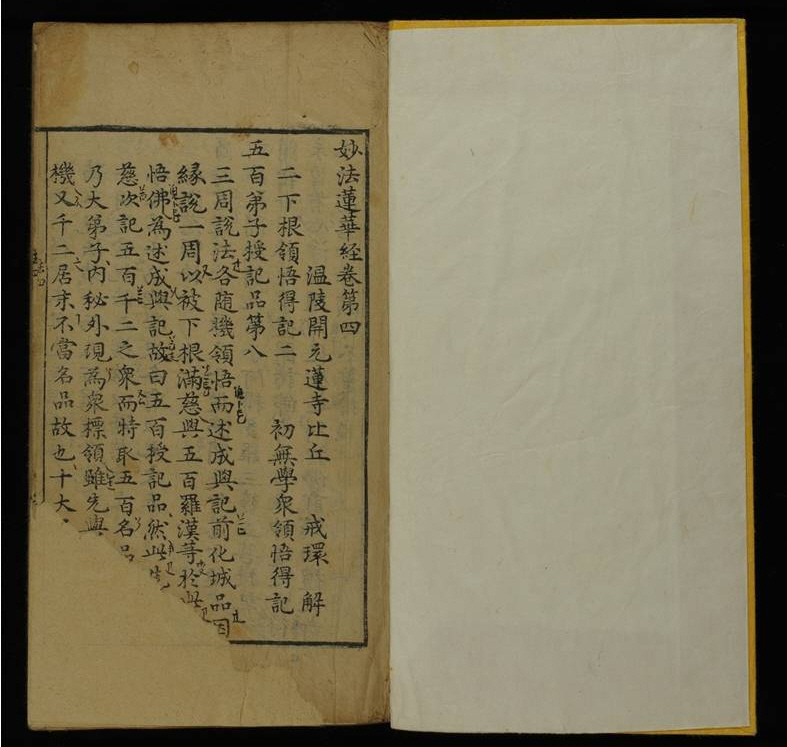 妙法蓮華経卷第四
温陵開元蓮寺比丘 戒環 解
二下根領悟得記二 初無學衆領悟得記
五百弟子授記品第八
三周說法各随機領悟而述成與記前化城品因
緣說一周以被下根滿慈與五百羅漢等於此
悟佛為述成與記故曰五百授記品然此
慈次記五百千二之衆而特取五百名品
乃大弟子內秘外現為衆標領雖先與
機又千二居末不當名品故也十大